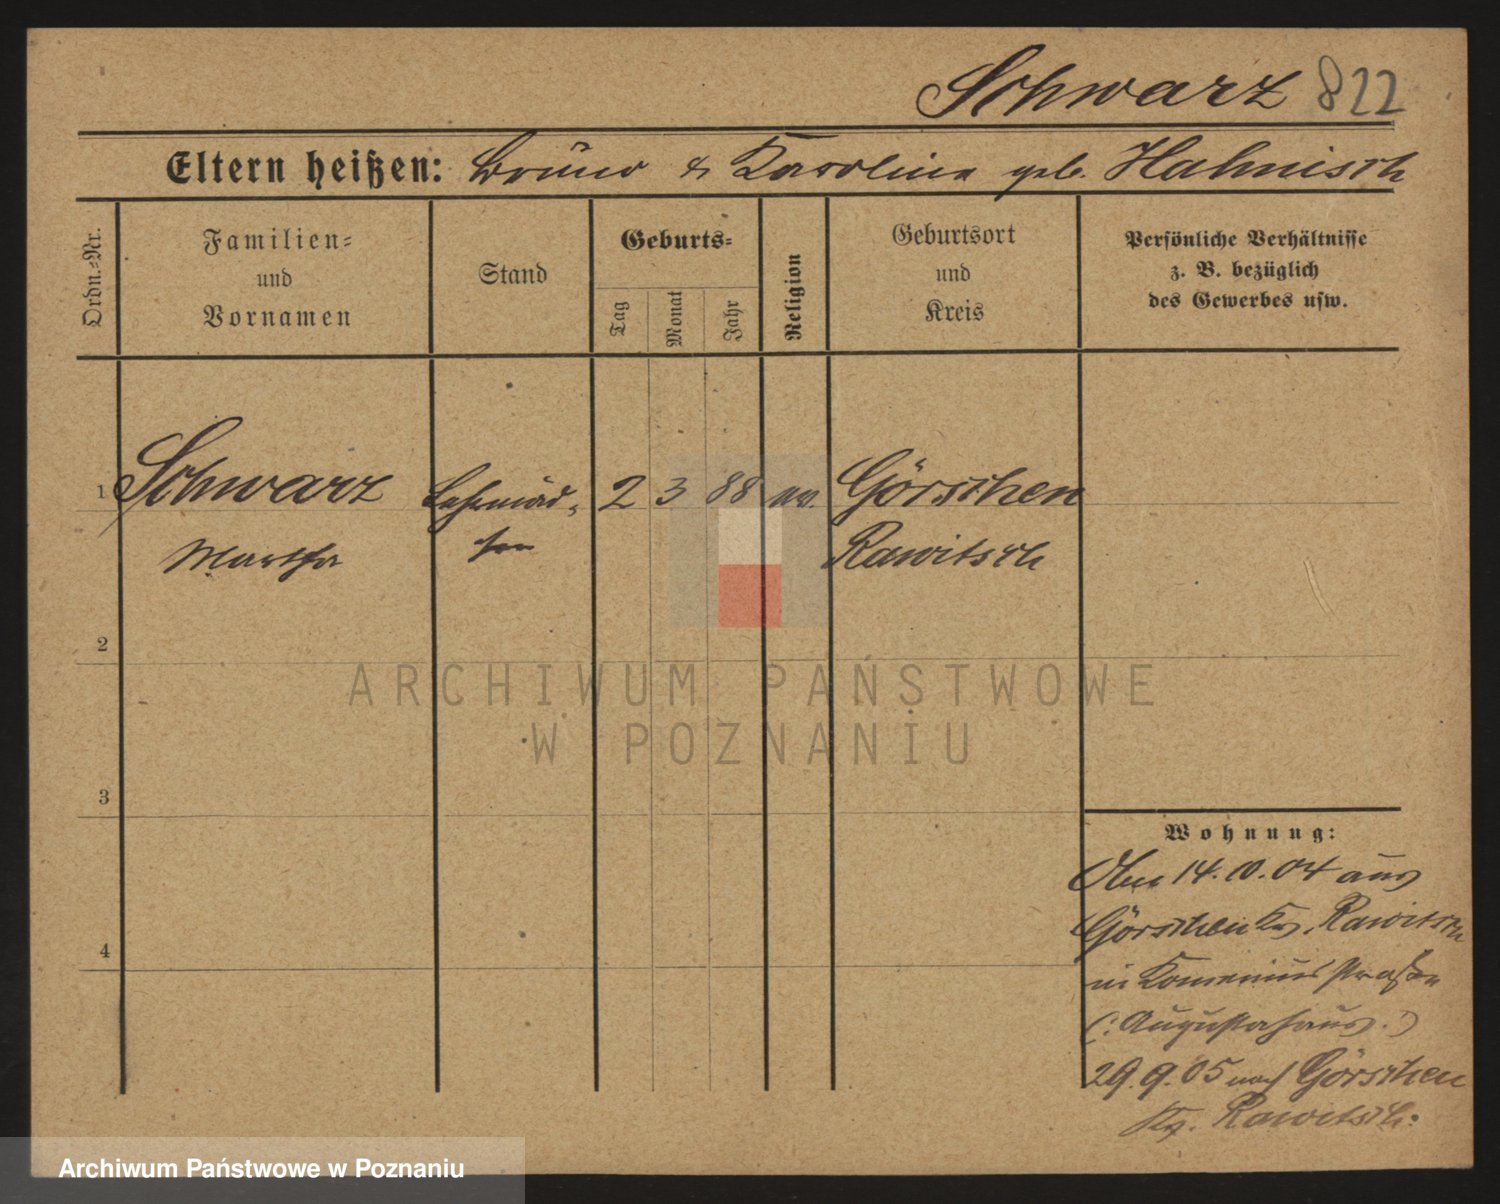 Schwarz 822
Eltern heißen: Bruno & Karoline geb. Hahnisch
Ordn.-Nr.
Familien-
und
Vornamen
Stand
Geburts-
Tag
Monat
Jahr
Religion
Geburtsort
und
Kreis
Persönliche Verhältnisse
z. B. bezüglich
des Gewerbes usw.
1 Schwarz Lehrmäd- 2 3 88 ev. Görschen
Martha Rawitsch
2
ARCHIWUM PAŃSTWOWE
W POZNANIU
3
4
Wohnung:
14.10.04 aus
Görschen Kr. Rawitsch
in Komeniusstraße
(: Augustahaus :)
29.9.05 nach Görschen
Kr. Rawitsch.
Archiwum Państwowe w Poznaniu